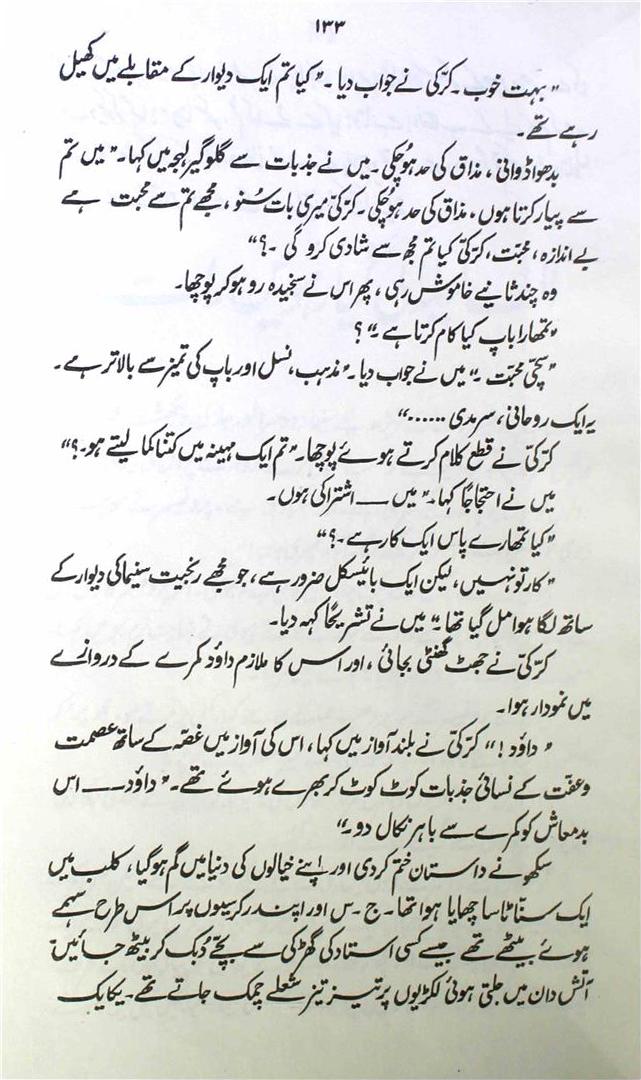 ۱۳۳
”بہت خوب۔ کرّکی نے جواب دیا۔“ کیا تم ایک دیوار کے مقابلے میں کھیل
رہے تھے۔
بدھواڈوانی، مذاق کی حد ہوچکی۔ میں نے جذبات سے گلوگیر لہجہ میں کہا۔ ”میں تم
سے پیار کرتا ہوں، مذاق کی حد ہوچکی۔ کرّکی میری بات سُنو، مجھے تم سے محبت ہے
بے اندازہ، محبّت، کرّکی کیا تم مجھ سے شادی کرو گی ۔؟“
وہ چند ثانیے خاموش رہی، پھر اس نے سنجیدہ رو ہو کر پوچھا۔
”تمھارا باپ کیا کام کرتا ہے۔“ ؟
”سچّی محبّت ۔“ میں نے جواب دیا۔ ”مذہب، نسل اور باپ کی تمیز سے بالاتر ہے۔
یہ ایک روحانی، سرمدی ......“
کرّکی نے قطع کلام کرتے ہوئے پوچھا۔ ”تم ایک مہینہ میں کتنا کما لیتے ہو۔؟“
میں نے احتجاجاً کہا۔ ”میں ـــ اشتراکی ہوں۔
”کیا تمھارے پاس ایک کار ہے۔؟“
”کار تو نہیں، لیکن ایک بائیسکل ضرور ہے، جو مجھے رنجیت سنیما کی دیوار کے
ساتھ لگا ہوا مل گیا تھا۔“ میں نے تشریحاً کہہ دیا۔
کرّکی نے جھٹ گھنٹی بجائی، اور اس کا ملازم داؤد کمرے کے دروازے
میں نمودار ہوا۔
”داؤد!“ کرّکی نے بلند آواز میں کہا، اس کی آواز میں غصہ کے ساتھ عصمت
و عفّت کے نسائی جذبات کوٹ کوٹ کر بھرے ہوئے تھے۔ ”داؤد ـــ اس
بدمعاش کو کمرے سے باہر نکال دو۔“
سکھو نے داستان ختم کردی اور اپنے خیالوں کی دنیا میں گم ہوگیا، کلب میں
ایک سنّاٹا سا چھایا ہوا تھا۔ ج۔س اور اپندر کرسیوں پر اس طرح سہمے
ہوئے بیٹھے تھے جیسے کسی استاد کی گھڑکی سے بچّے دُبک کر بیٹھ جائیں
آتش دان میں جلتی ہوئی لکڑیوں پر تیز تیز شعلے چمک جاتے تھے۔ یکایک